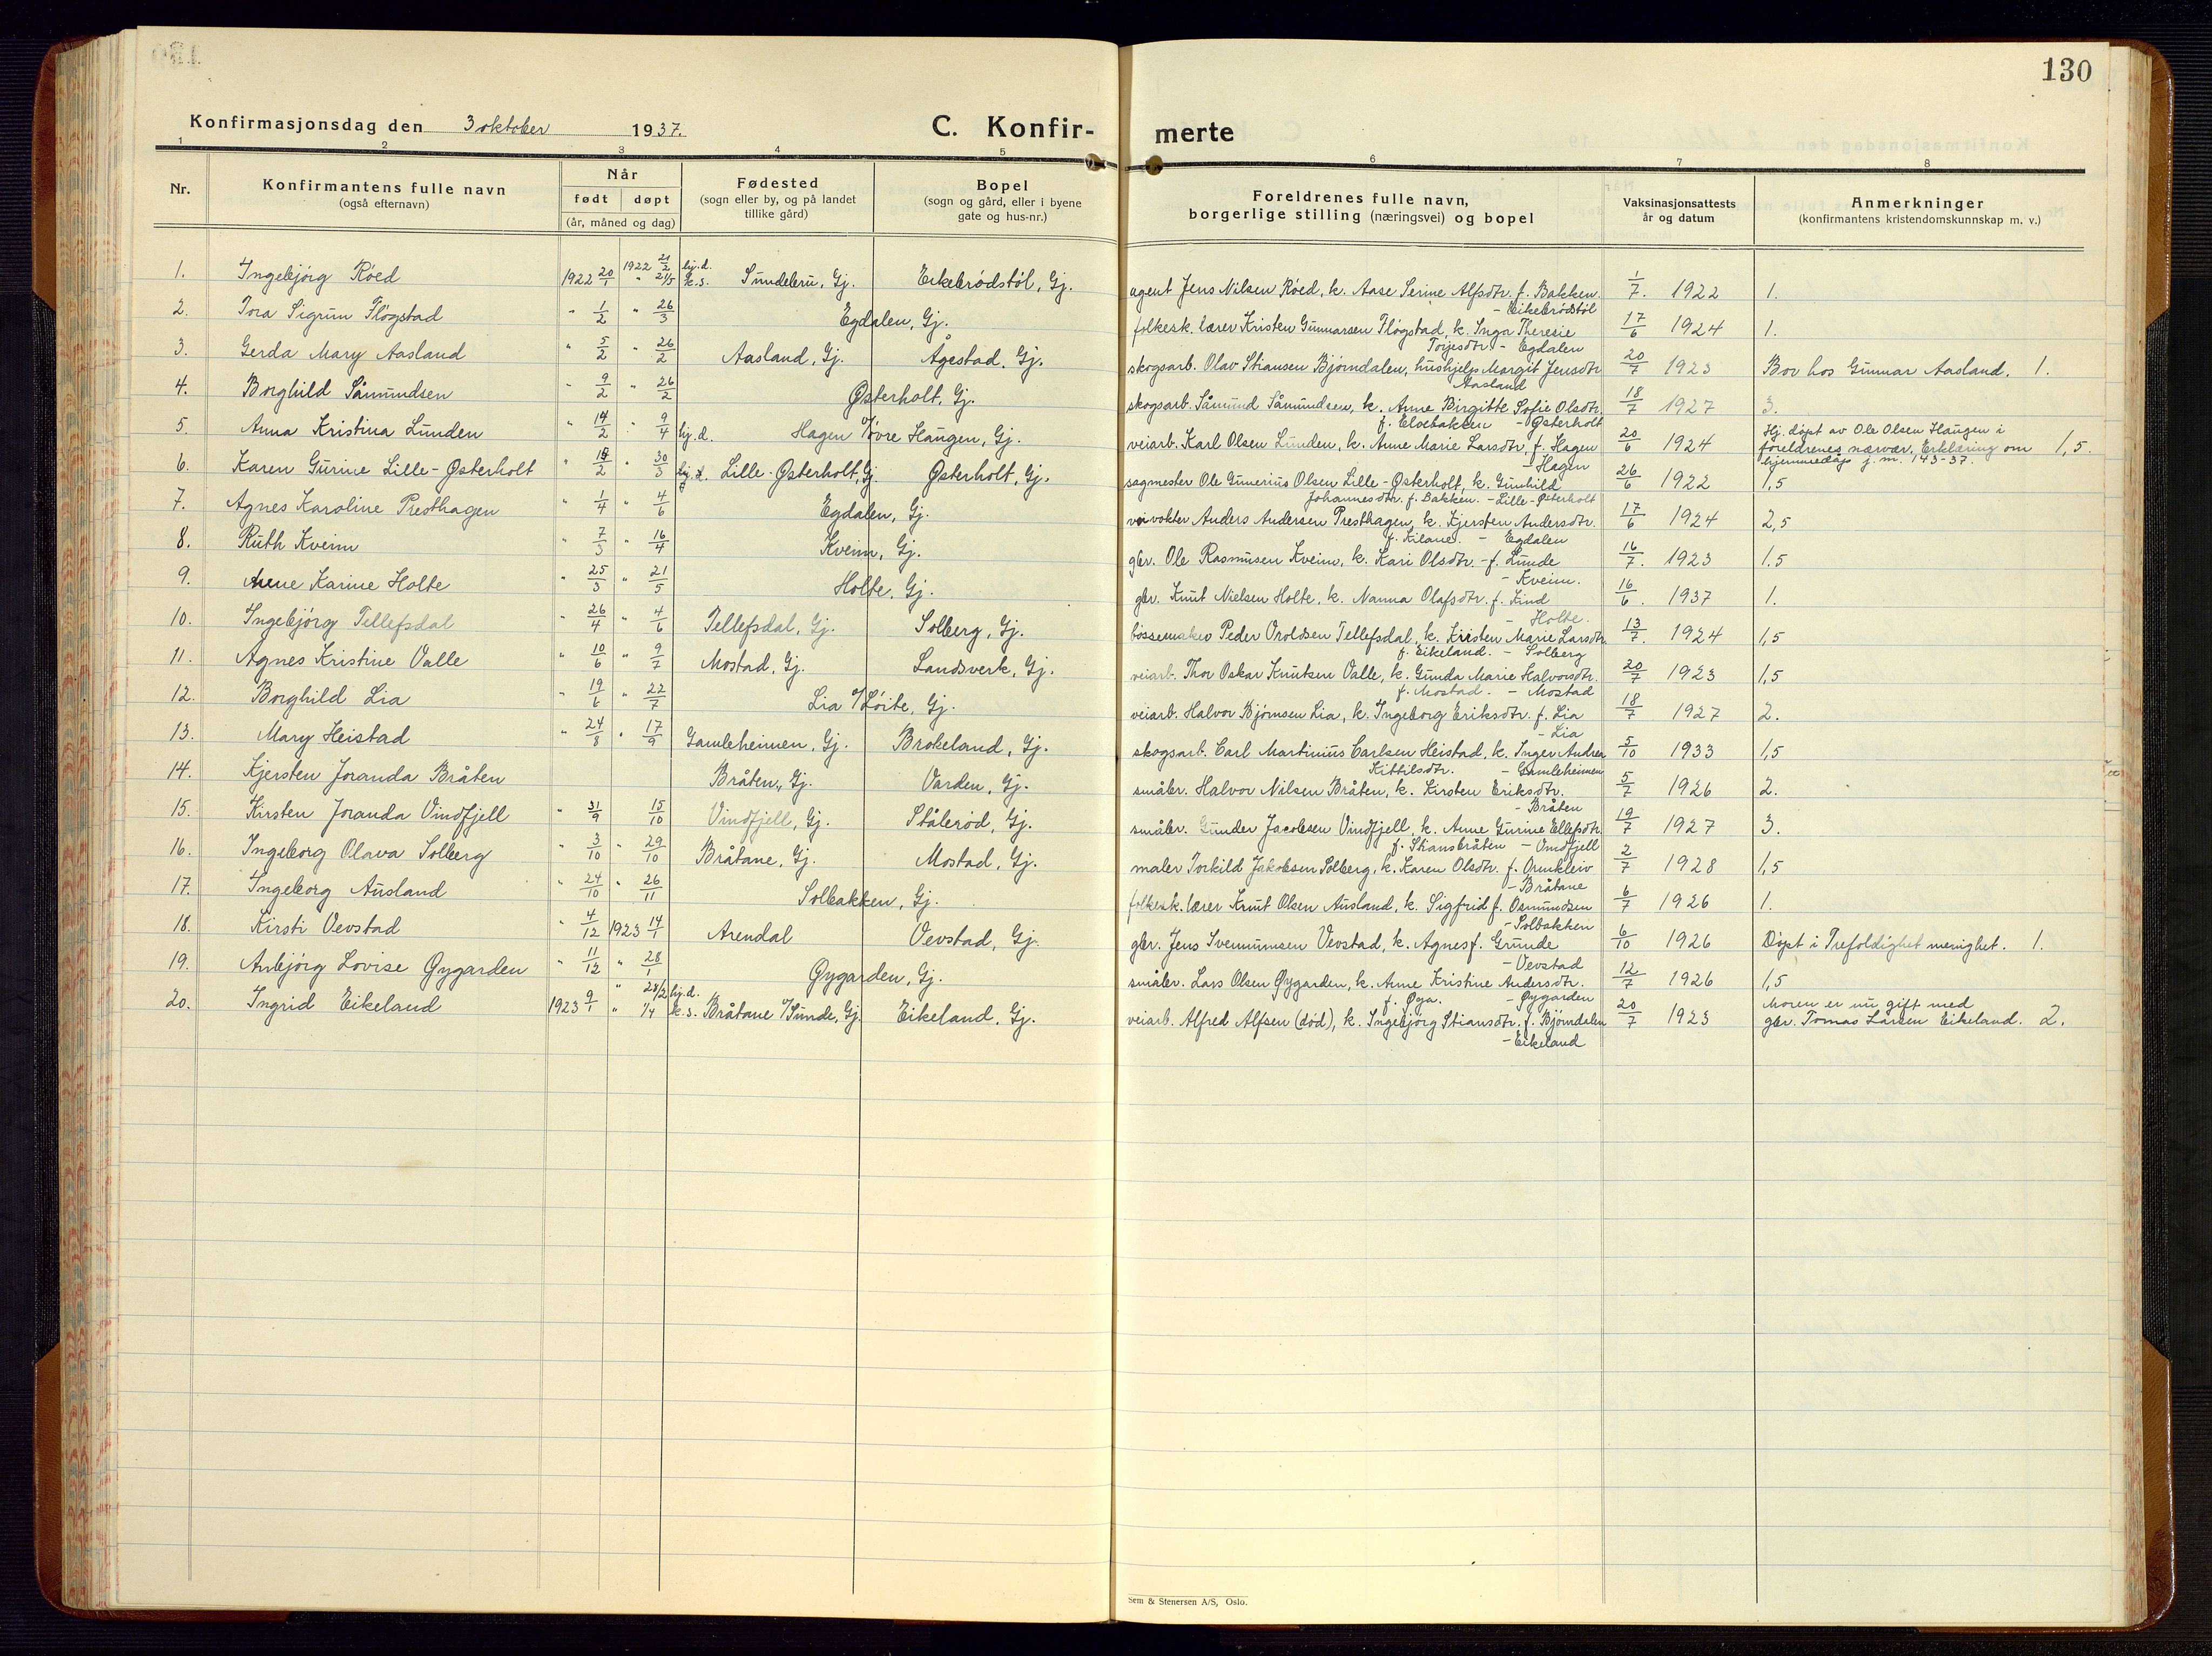 130
Konfirmasjonsdag den 3 oktober 1937.
C. Konfir- merte
1 2 3 4 5 6 7 8
Nr.
Konfirmantens fulle navn
(også efternavn)
Når
født døpt
(år, måned og dag)
Fødested
(sogn eller by, og på landet
tillike gård)
Bopel
(sogn og gård, eller i byene
gate og hus-nr.)
Foreldrenes fulle navn,
borgerlige stilling (næringsvei) og bopel
Vaksinasjonsattests
år og datum
Anmerkninger
(konfirmantens kristendomskunnskap m. v.)
1. Ingebjörg Röed 1922 20/1 1922 21/2 hj. d. " 21/5 k. s. Sundebru, Gj. Eikebrødstöl, Gj. agent Jens Nilsen Röed, k. Aase Serine Alfsdtr. f. Bakken. 1/7. 1922 1.
- Eikebrödstöl
2. Tora Sigrun Flögstad " 1/2 " 26/3 Egdalen, Gj. folkesk. lærer Kristen Gunnarsen Flögstad, k. Inga Theresie 17/6 1924 1.
Torjesdtr - Egdalen
3. Gerda Mary Aasland " 5/2 " 26/2 Aasland, Gj. Ågestad, Gj. skogsarb. Olav Stiansen Bjørndalen, hushjelp Margit Jensdtr 20/7 1923 Bor hos Gunnar Aasland. 1.
Aasland
4. Borghild Såmundsen " 9/2 " 26/2 Østerholt, Gj. skogsarb. Såmund Såmundsen, k. Anne Birgitte Sofie Olsdtr. 18/7 1927 3.
f. Elsebakken - Østerholt
5. Anna Kristina Lunden " 14/2 " 9/4 hj. d. Hagen u/övre Haugen, Gj. veiarb. Karl Olsen Lunden, k. Anne Marie Larsdtr. f. Hagen 20/6 1924 Hj. döpt av Ole Olsen Haugen i
- Hagen foreldrenes nærvær. Erklæring om 1,5.
hjemmedåp j. nr. 143-37.
6. Karen Gurine Lille-Østerholt " 18/2 " 30/3 hj. d. Lille-Østerholt, Gj. Østerholt, Gj. sagmester Ole Gunerius Olsen Lille-Østerholt, k. Gunhild 26/6 1922 1,5
Johannesdtr. f. Bakken. - Lille-Østerholt
7. Agnes Karoline Presthagen " 1/4 " 4/6 Egdalen, Gj. veivokter Anders Andersen Presthagen, k. Kjersten Andersdtr. 17/6 1924 2,5
f. Kilane. - Egdalen
8. Ruth Kveim " 7/3 " 16/4 Kveim, Gj. gbr. Ole Rasmusen Kveim, k. Kari Olsdtr. - f. Lunde 16/7. 1923 1.5
- Kveim.
9. Anne Karine Holte " 25/3 " 21/5 Holte, Gj. gbr. Knut Nielsen Holte, k. Nanna Olafsdtr. f. Lind 16/6. 1937 1.
- Holte.
10. Ingebjörg Tellefsdal " 26/4 " 4/6 Tellefsdal, Gj. Solberg, Gj. bössemaker Peder Oroldsen Tellefsdal, k. Kirsten Marie Larsdtr. 13/7. 1924 1,5
f. Eikeland. - Solberg
11. Agnes Kristine Valle " 10/6 " 9/7 Mostad, Gj. Landsverk, Gj. veiarb. Thor Oskar Knutsen Valle, k. Gunda Marie Halvorsdtr. 20/7 1923 1,5
f. Mostad. - Mostad
12. Borghild Lia " 19/6 " 22/7 Lia u/Löite, Gj. veiarb. Halvor Bjørnsen Lia, k. Ingeborg Eriksdtr. f. Lia 18/7 1927 2.
- Lia
13. Mary Heistad " 24/8 " 17/9 Gamleheimen, Gj. Brokeland, Gj. skogsarb. Carl Martinius Carlsen Heistad, k. Inger Andrea 5/10 1933 1,5
Kittilsdtr. - Gamleheimen
14. Kjersten Joranda Bråten Bråten, Gj. Varden, Gj. småbr. Halvor Nilsen Bråten, k. Kirsten Eriksdtr. 5/7 1926 2.
- Bråten
15. Kirsten Joranda Vindfjell " 31/9 15/10 Vindfjell, Gj. Stålerød, Gj. småbr. Gunder Jacobsen Vindfjell, k. Anne Gurine Ellefsdtr. 19/7 1927 3.
f. Stiansbråten - Vindfjell
16. Ingeborg Olava Solberg " 3/10 " 29/10 Bråtane, Gj. Mostad, Gj. maler Torkild Jakobsen Solberg, k. Karen Olsdtr. f. Ormkleiv 2/7 1928 1,5
- Bråtane
17. Ingeborg Ausland " 24/10 " 26/11 Solbakken, Gj. folkesk. lærer Knut Olsen Ausland, k. Sigfrid f. Osmundsen 6/7 1926 1.
- Solbakken
18. Kirsti Vevstad " 4/12 1923 14/1 Arendal Vevstad, Gj. gbr. Jens Svennumsen Vevstad, k. Agnes f. Grunde 6/10 1926 Döpt i Trefoldighet menighet. 1.
- Vevstad
19. Anbjörg Lovise Øygarden " 11/12 " 28/1 Øygarden, Gj. småbr. Lars Olsen Øygarden, k. Anne Kristine Andersdtr. 12/7 1926 1,5
f. Øya. - Øygarden
20. Ingrid Eikeland 1923 9/1 " 28/2 hj. d. " 1/4 k. s. Bråtane u/Sunde, Gj. Eikeland, Gj. veiarb. Alfred Alfsen (död), k. Ingebjörg Stiansdtr. f. Björndalen 20/7 1923 Moren er nu gift med
- Eikeland gbr. Tomas Larsen Eikeland. 2.
Sem & Stenersen A/S, Oslo.